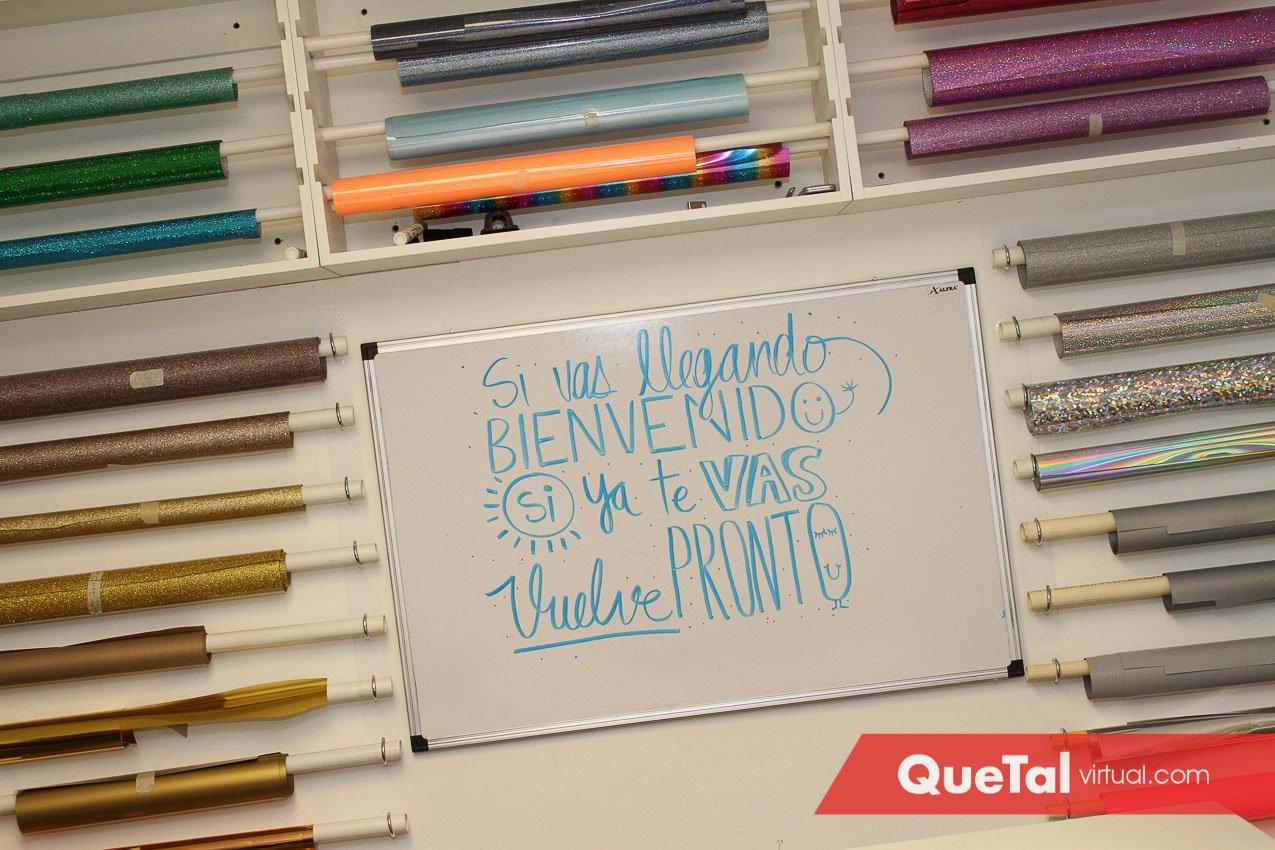 ALFRA
Si vas llegando
BIENVENIDO
Si ya te VAS
Vuelve PRONTO
QueTal virtual.com